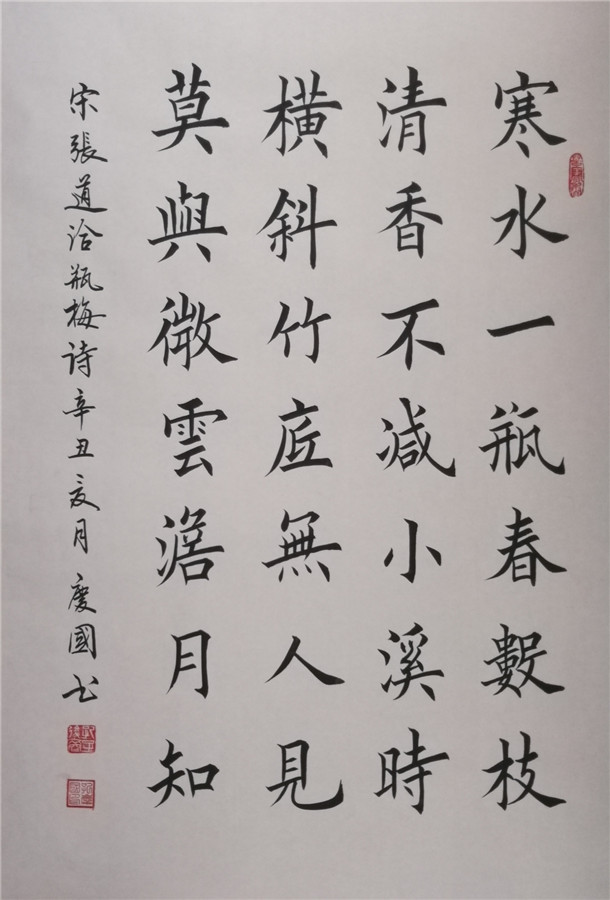 寒水一瓶春數枝
清香不減小溪時
橫斜竹底無人見
莫與微雲澹月知
宋張道洽瓶梅詩辛丑亥月慶國书